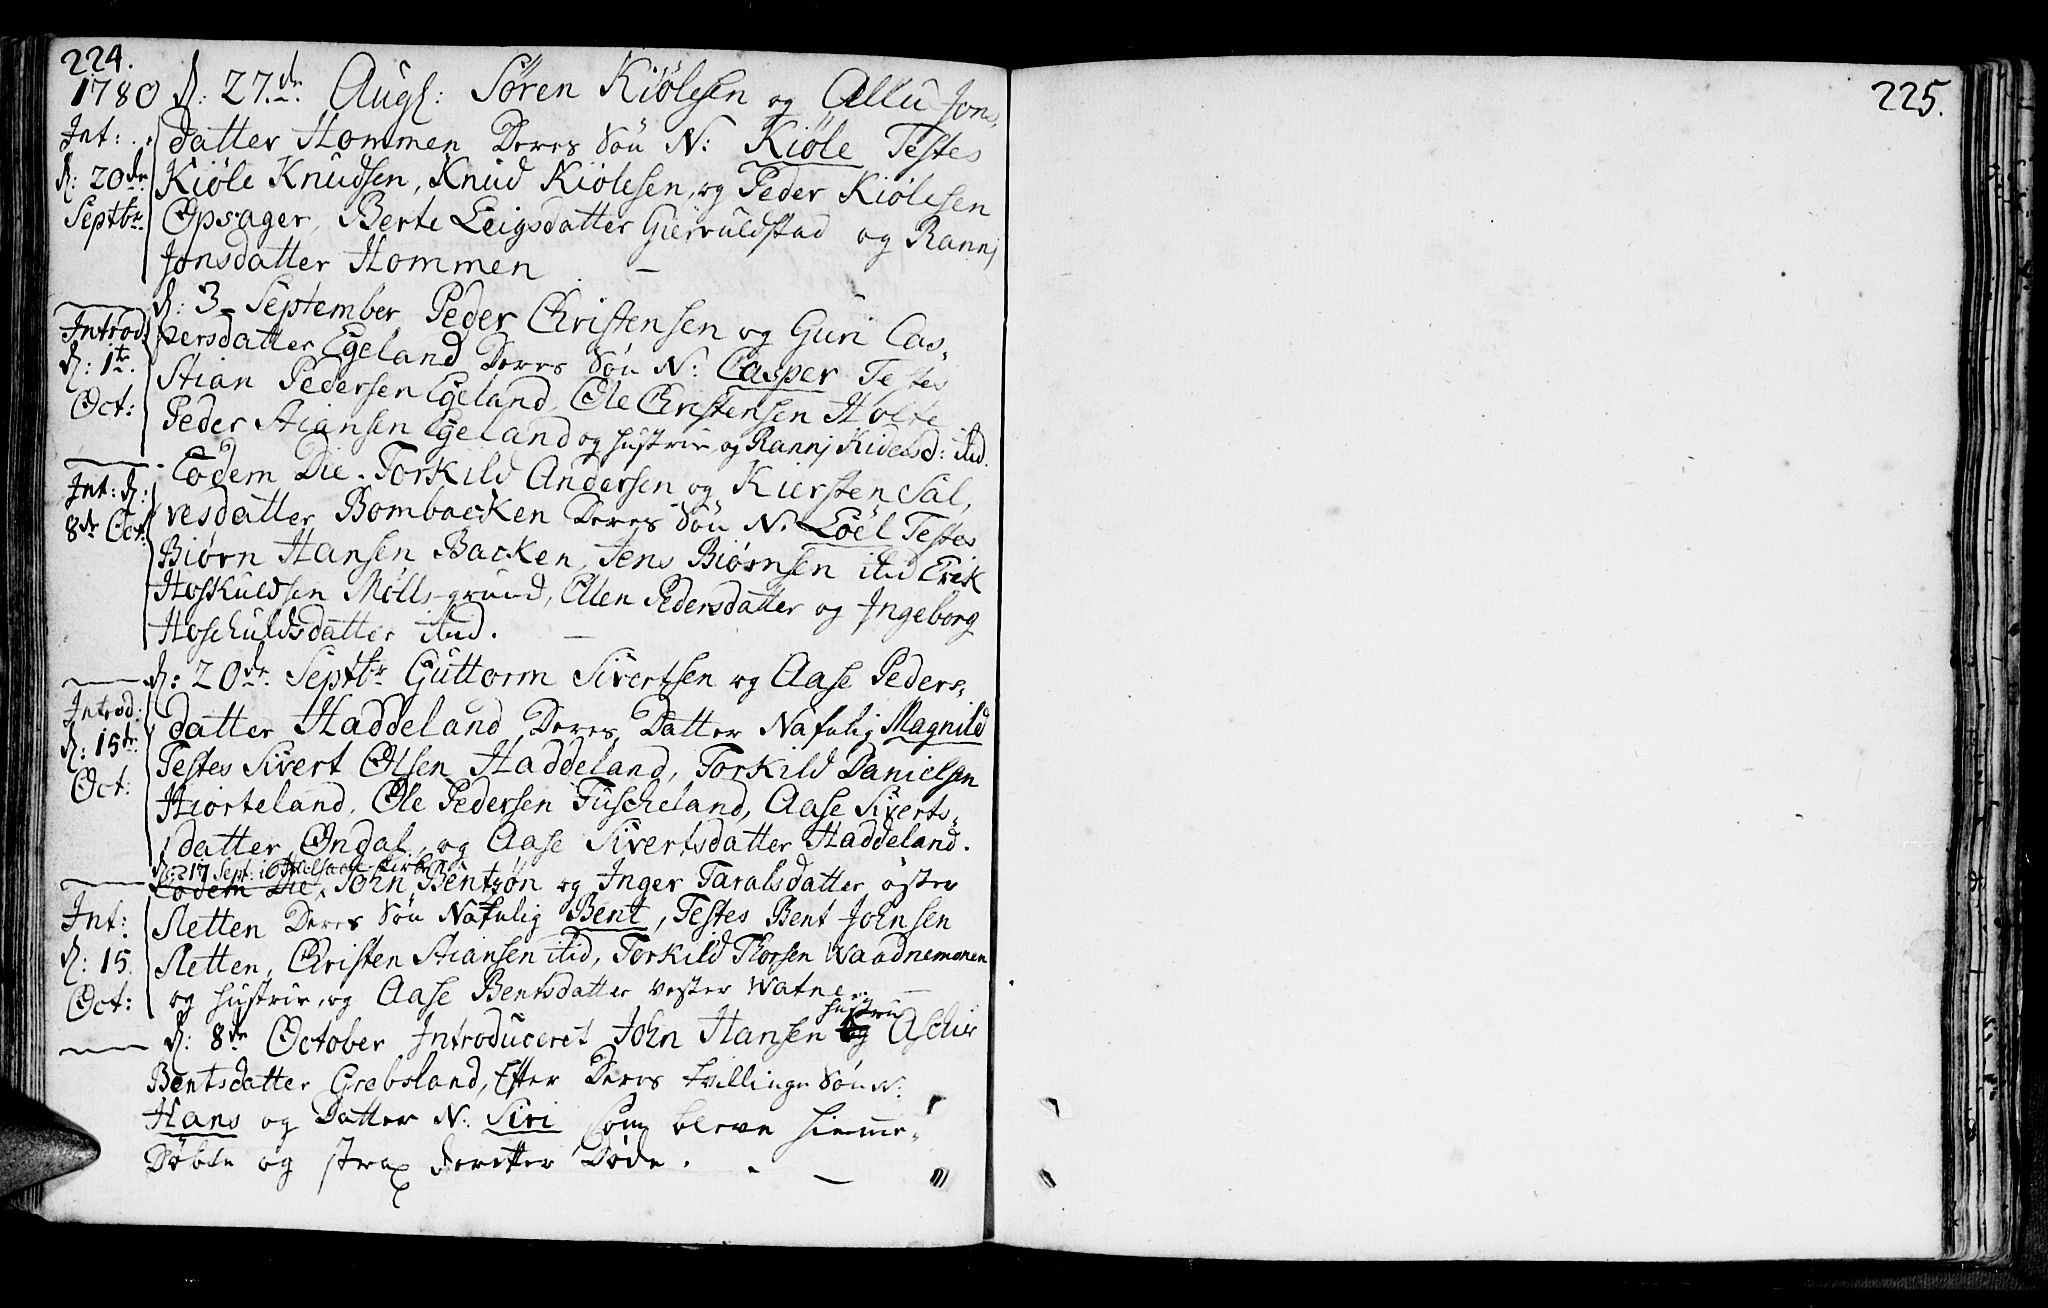 224.
1780 d: 27de Augs: Søren Kiölesen og Allu Jons,
Int: datter Hommen Deres Søn N: Kiöle Testes
d: 20de Kiöle Knudsen, Knud Kiölesen, og Peder Kiölesen
Septbr Opsager, Berte Leigsdatter Gierruldstad og Rannj
Jonsdatter Hommen
d: 3 September Peder Christensen og Guri Cas=
Introd: persdatter Egeland Deres Søn N: Casper Testes
d: 1te Stian Pedersen Egeland, Ole Christensen Holte
Oct: Peder Stiansen Egeland og hustrue og Rannj Kidelsd: itid.
Eodem Die. Torkild Andersen og Kiersten Sal,
Int: d: vesdatter Bombacken Deres Søn N. Loël Testes
8de Oct: Biørn Hansen Backen, Jens Biørnsen itid Erik
Hoskuldsen Mølls-grund, Ellen Pedersdatter og Ingeborg
Hoschuldsdatter itid.
d: 20de Septbr Guttorm Sivertsen og Aase Peders=
Introd: datter Haddeland Deres Datter Nafnlig Magnild
d: 15de Testes Sivert Olsen Haddeland, Torkild Danielsen
Oct: Hiorteland, Ole Pedersen Tuscheland, Aase Siverts=
datter Ondal, og Aase Sivertsdatter Haddeland.
d: 17 Sept: i Kirke
Eodem Die, John Bentsøn og Inger Taralsdatter øster
Int: Sletten Deres Søn Nafnlig Bent, Testes Bent Johnsen
d: 15 Sletten, Christen Stiansen itid, Torkild Thorsen Waadnemonen
Oct: og hustrue, og Aase Bentsdatter Vester Watne.
hustru
d: 8de October Introduceret John Hansen og Aschie
Bentsdatter Grebsland, Efter Deres tvillinge Søn N:
Hans og Datter N: Siri som bleve hieme=
Døbte og strax derefter Døde.
225.